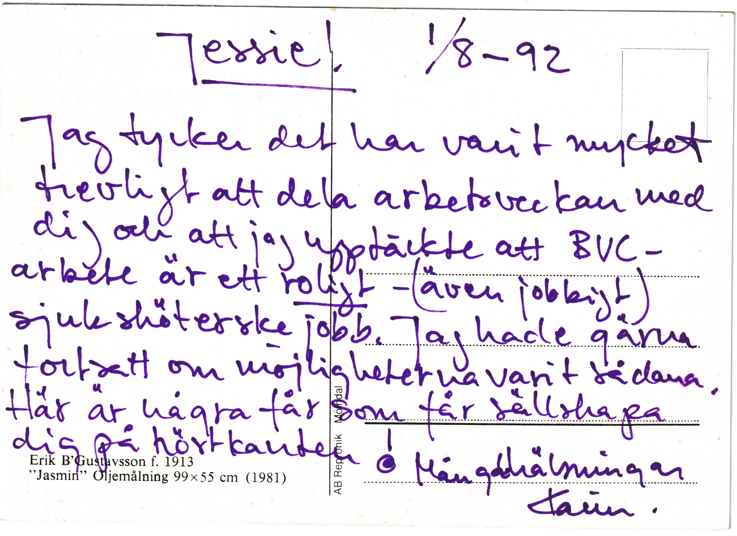 Jessie! 1/8-92
Jag tycker det har varit mycket
trevligt att dela arbetsveckan med
dig och att jag upptäckte att BVC-
arbete är ett roligt - (även jobbigt)
sjuksköterske jobb. Jag hade gärna
fortsatt om möjligheterna varit sådana.
Här är några får som får sällskapa
dig på hörtkanten!
Många hälsningar
Karin.
Erik B'Gustavsson f. 1913
"Jasmin" Oljemålning 99×55 cm (1981)
AB Repronik Mölndal